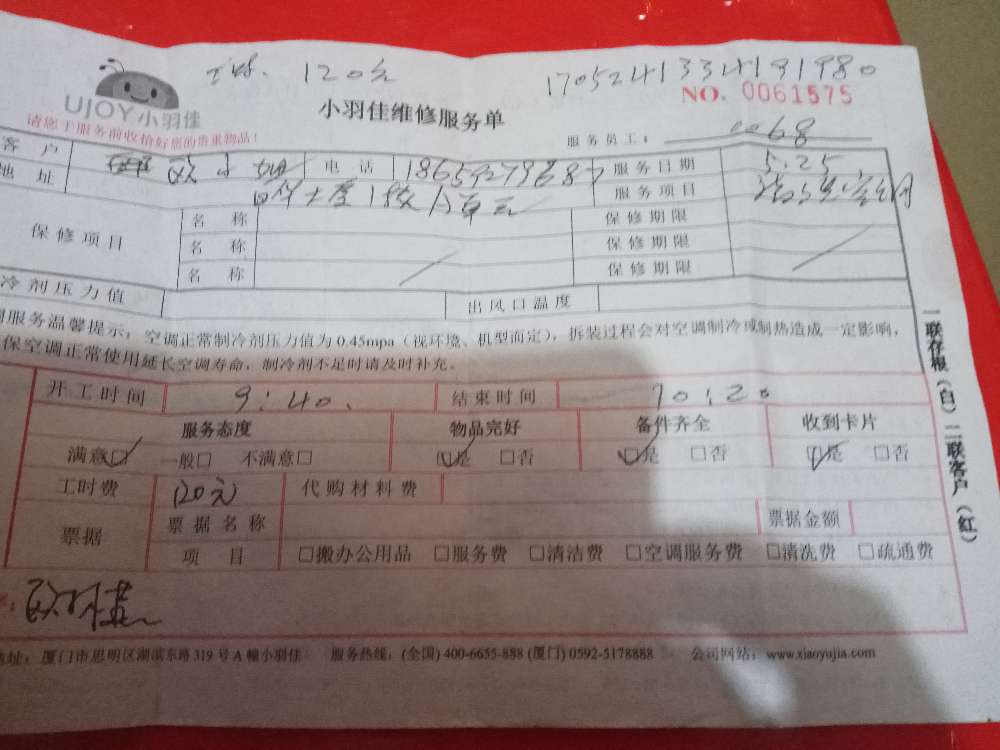 120元 1705241334191980
UJOY小羽佳
小羽佳维修服务单 NO. 0061575
请您于服务前收拾好您的贵重物品！
服务员工： 0068
客 户 欧小姐 电 话 服务日期 5.25
地 址 服务项目
保修项目 名 称 保修期限
名 称 保修期限
名 称 保修期限
冷剂压力值 出风口温度
调服务温馨提示：空调正常制冷剂压力值为 0.45mpa（视环境、机型而定），拆装过程会对空调制冷或制热造成一定影响，
保空调正常使用延长空调寿命，制冷剂不足时请及时补充。
开工时间 9:40 结束时间 10:20
服务态度 物品完好 备件齐全 收到卡片
满意☑ 一般□ 不满意□ ☑是 □否 ☑是 □否 ☑是 □否
工时费 120元 代购材料费
票据 票据名称 票据金额
项 目 □搬办公用品 □服务费 □清洁费 □空调服务费 □清洗费 □疏通费
地址：厦门市思明区湖滨东路 319 号 A 幢小羽佳 服务热线：(全国) 400-6655-888 (厦门) 0592-5178888 公司网站：www.xiaoyujia.com
一联存根（白）二联客户（红）